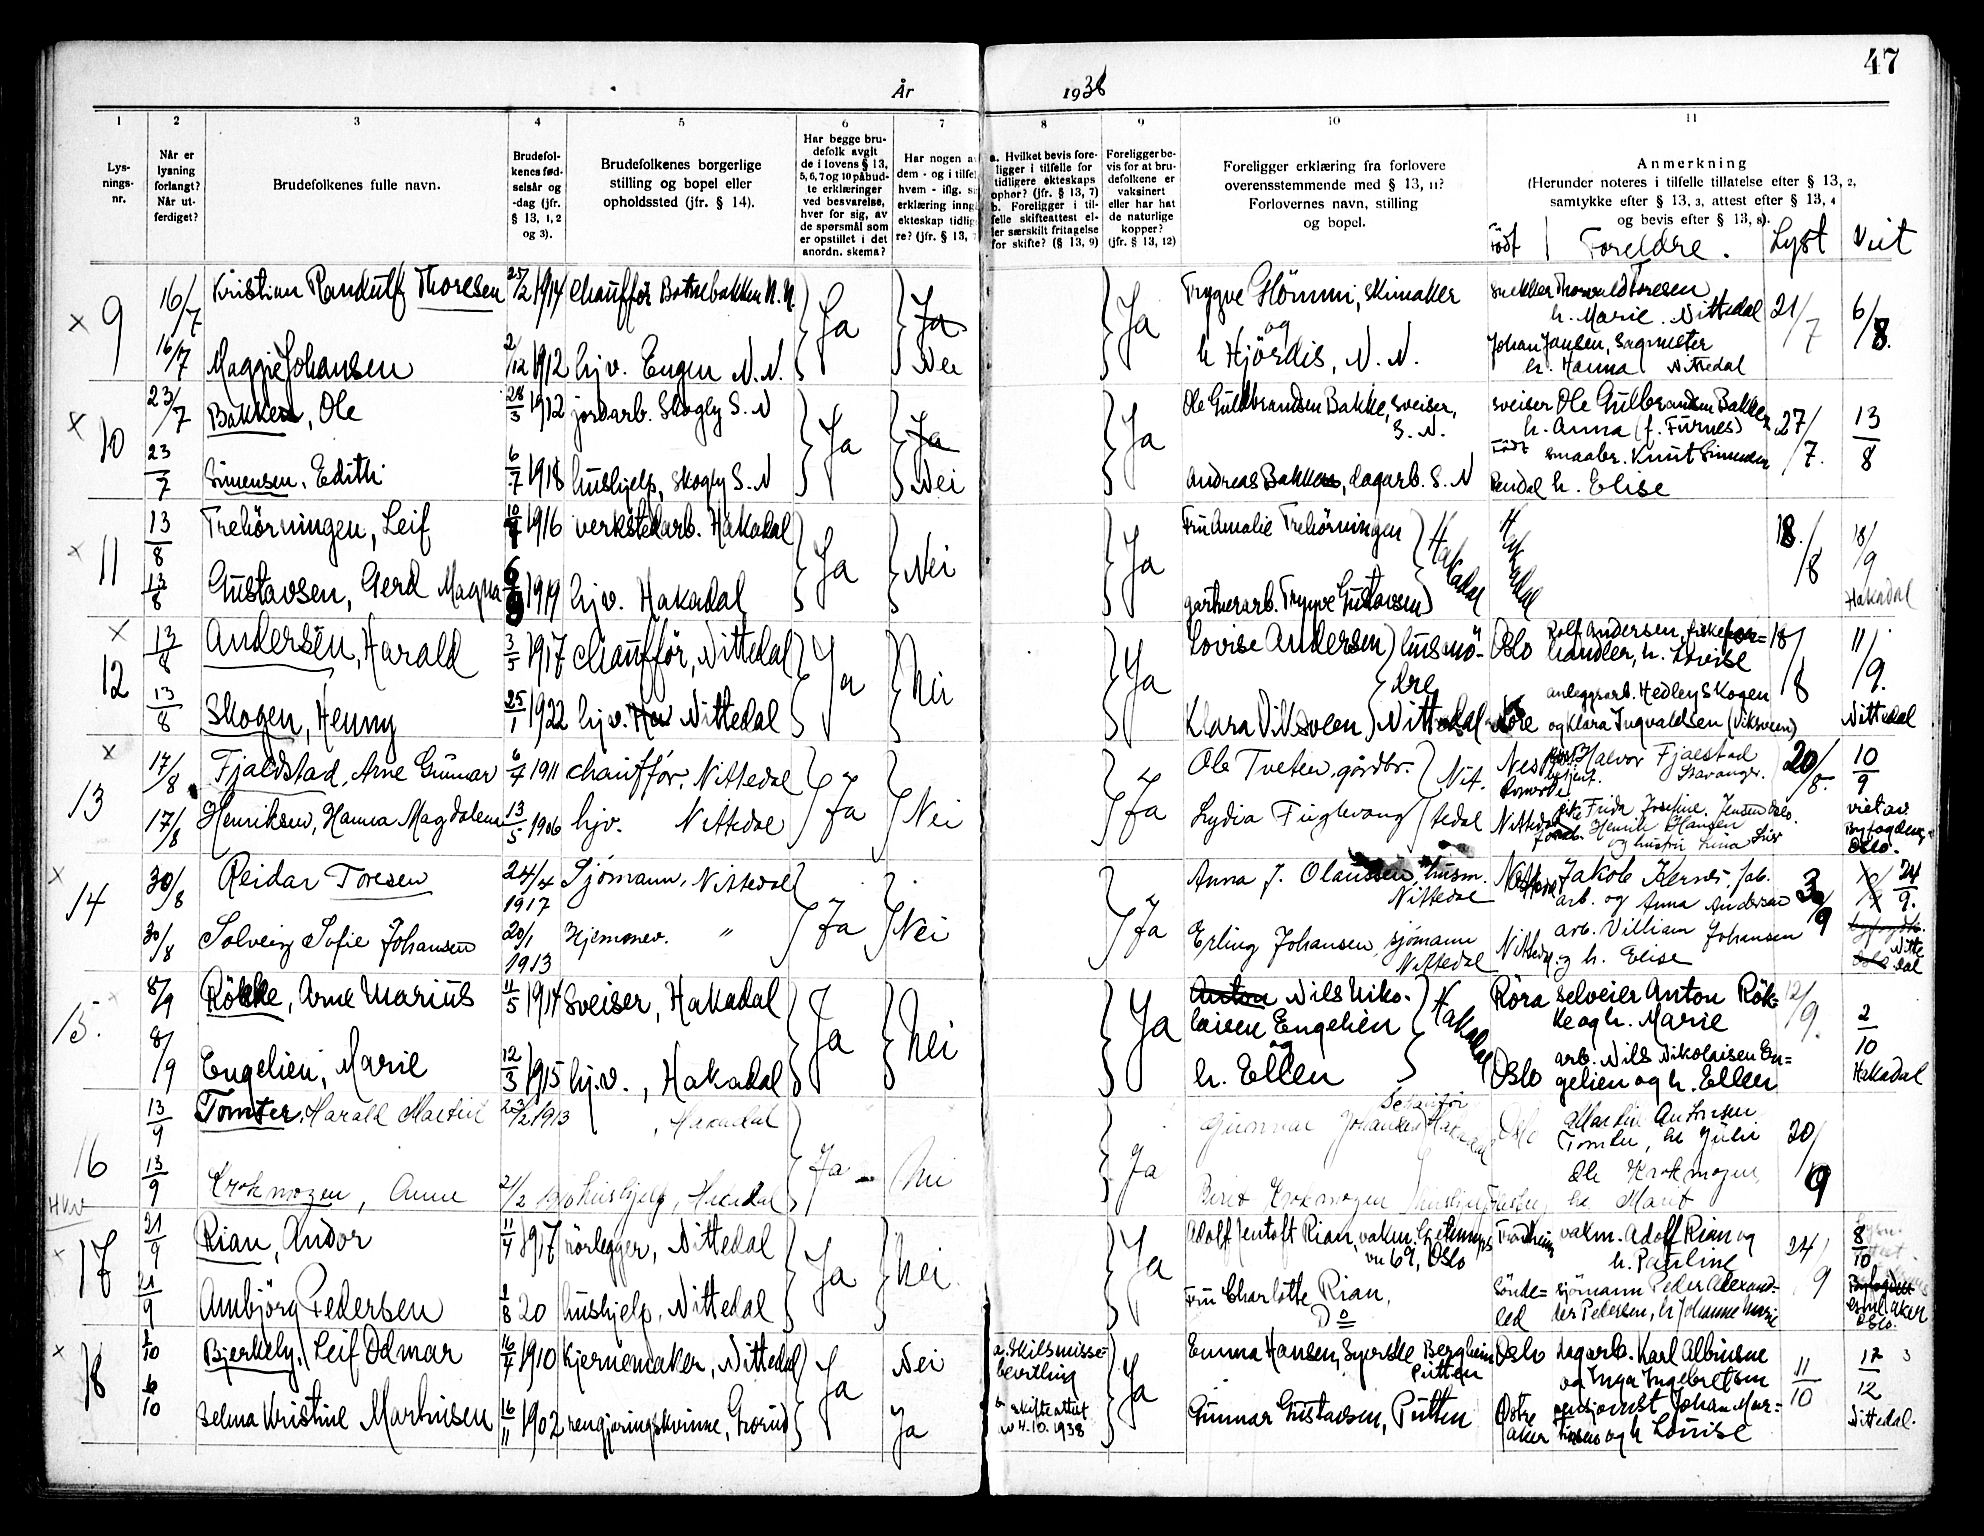 47
År 1938
1 2 3 4 5 6 7 8 9 10 11
Lys-
nings-
nr.
Når er
lysning
forlangt?
Når ut-
ferdiget?
Brudefolkenes fulle navn.
Brudefol-
kenes fød-
selsår og
-dag (jfr.
§ 13, 1, 2
og 3).
Brudefolkenes borgerlige
stilling og bopel eller
opholdssted (jfr. § 14).
Har begge bru-
defolk avgit
de i lovens § 13,
5, 6, 7 og 10 påbud-
te erklæringer
ved besvarelse,
hver for sig, av
de spørsmål som
er opstillet i det
anordn. skema?
Har nogen a
dem - og i tilfel
hvem - iflg. si
erklæring inng
ekteskap tidlig
re? (jfr. § 13,
a. Hvilket bevis fore-
ligger i tilfelle for
tidligere ekteskaps
ophør? (jfr. § 13, 7)
b. Foreligger i til-
felle skifteattest el-
ler særskilt fritagelse
for skifte? (§ 13, 9)
Foreligger be-
vis for at bru-
defolkene er
vaksinert
eller har hat
de naturlige
kopper?
(jfr. § 13, 12)
Foreligger erklæring fra forlovere
overensstemmende med § 13, 11?
Forlovernes navn, stilling
og bopel.
Anmerkning
(Herunder noteres i tilfelle tillatelse efter § 13, 2,
samtykke efter § 13, 3, attest efter § 13, 4
og bevis efter § 13, 8).
Født | Foreldre. Lyst Viet
x 9 16/7 Kristian Randulf Thoresen 25/2 1914 chauffør Botnebakken N.N. Ja Ja Ja Trygve Glömmi, skimaker snekker Thorvald Toresen 21/7 6/8.
og h. Marie. Nittedal
16/7 Maggie Johansen 2/12 1912 hjv. Engen N.N. Nei h Hjördis, N.N. Johan Jansen, sagmester
h. Hanna Nittedal
x 10 23/7 Bakken, Ole 28/5 1912 jordarb. Skogly S.N Ja Ja Ja Ole Gulbrandsen Bakke, sveiser, sveiser Ole Gulbrandsen Bakken 27/7. 13/8
S.N. h. Anna (f. Furnes)
23/7 Simensen, Edith 6/7 1918 hushjelp, Skogly S.N Nei Andreas Bakken, dagarb. S.N Født smaabr. Knut Simensen
Rendal h. Elise
x 11 13/8 Trehörningen, Leif 10/7 1916 verkstedarb. Hakadal Ja Nei Ja Fru Amalie Trehörningen Hakadal Hakadal 18./8 18/9
13/8 Gustavsen, Gerd Magna 1919 hjv. Hakadal gartnerarb. Trygve Gustavsen Hakadal
x 12 13/8 Andersen, Harald 3/5 1917 chauffør, Nittedal Ja Nei Ja Lovise Andersen husmö- Oslo Rolf Andersen, fiskefor= 18/8 11/9.
dre handler, h. Lovise
13/8 Skogen, Henny 25/1 1922 hjv. Nittedal Klara Vilsveen Nittedal Nore anleggsarb. Hedley Skogen Nittedal
og Klara Ingvaldsen (Viksveen)
x 13 17/8 Fjaldstad, Arne Gunnar 6/7 1911 chauffør, Nittedal Ja Nei Ja Ole Tveten, gårdbr. Nit- Nes Halvor Fjaelstad 20/8. 10/9
Stavanger.
17/8 Henriksen, Hanna Magdalene 13/5 1906 hjv. Nittedal Lydia Fuglevaag tedal Nittedal Frida Josefine Jensen Oslo. viet av
Henrik Hansen Byfogden,
og hustru Lina Oslo.
x 14 30/8 Reidar Toresen 24/4 1917 Sjømann, Nittedal Ja Nei Ja Anna J. Olaussen husm. Nittedal Jakob Kernes, fab. 3/9 24/9.
Nittedal arb. og Anna Andersen
30/8 Solveig Sofie Johansen 20/1 1913 Hjemmev. " Erling Johansen, sjømann Nittedal arb. Villiam Johansen Nitte
Nittedal og h. Elise dal
15. 8/9 Rökke, Arne Marius 11/5 1914 Sveiser, Hakadal Ja Nei Ja Anton Nils Niko- Hakadal Röra selveier Anton Rök= 12/9. 2/10
laisen Engelien ke og h. Marie
8/9 Engelien, Marie 12/3 1915 hj.v., Hakadal og Oslo arb. Nils Nikolaisen En= Hakadal
h. Ellen gelien og h. Ellen
16 13/9 Tomter, Harald Martin 23/2 1913 , Hakadal Ja Nei Ja Gunnar Johansen Hakadal Oslo Martin Antonsen 20/9
Tomter, h. Julie
13/9 Krokmogen, Anne 21/2 hushjelp, Hakadal Berit Krokmogen Ole Krokmogen,
h. Marit
x 17 21/9 Rian, Andor 11/4 1917 rörlegger, Nittedal Ja Nei. Ja Adolf Jentoft Rian, vakm. Trondheim vakm. Adolf Rian og 24/9 8/10
vn 69, Oslo h. Pauline
21/9 Ambjörg Pedersen 1/8 20 hushjelp, Nittedal Fru Charlotte Rian, Sönde= sjömann Peder Alexand- Aker
Do led der Pedersen, h Johanne Marie Oslo.
x 18 6/10 Bjerkely, Leif Odmar 16/7 1910 Kjernemaker, Nittedal Ja Nei a. Skilsmisse- Ja Emma Hansen, Syerske Bergheim Oslo dagarb. Karl Albinsne 11/10 17/12
bevilling Putten og Inga Ingebretsen
6/10 Selma Kristine Marhisen 16/11 1902 rengjøringskvinne, Grorud Ja b skifteattest Gunnar Gustavsen, Putten Østre pensjonist Johan Mar= Nittedal.
av 4.10.1938 aker tinsen og h Louise